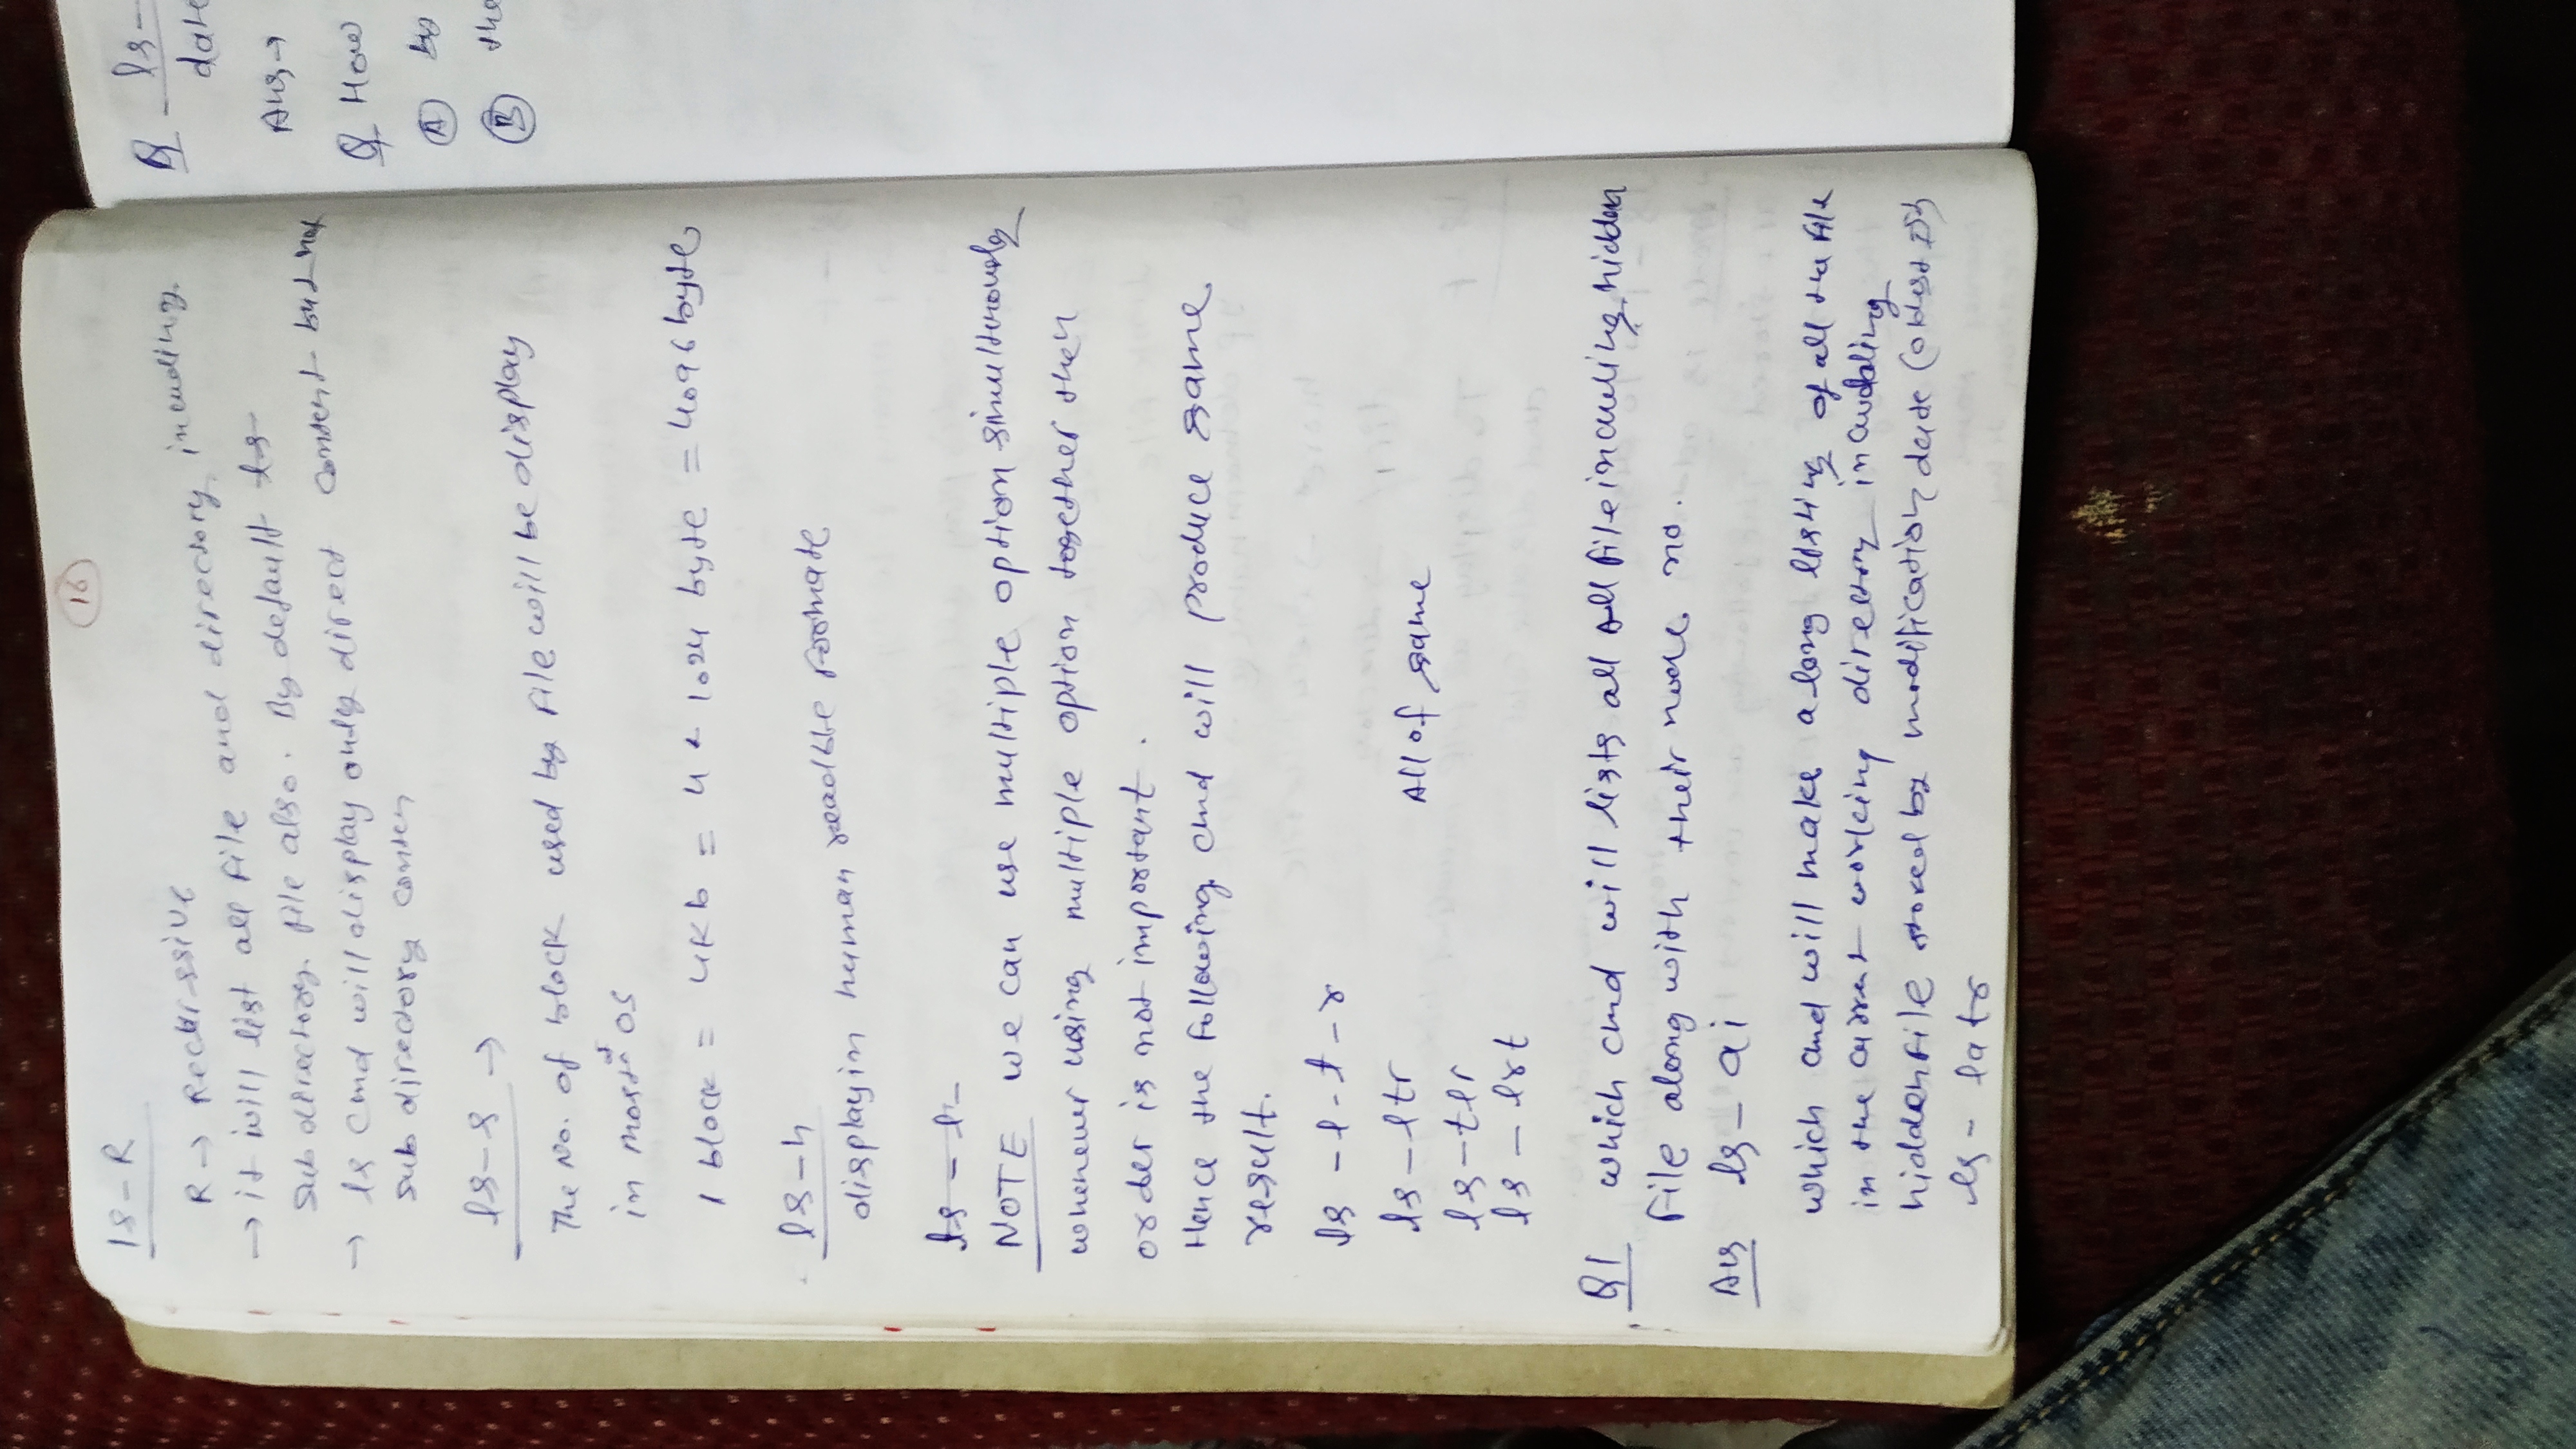 16
ls-R
R → Recurssive
→ it will list all file and directory including
sub directory file also. By default ls
→ ls cmd will display only direct content but not
sub directory conten
ls-s →
The No. of block used by file will be display
in most of OS
1 block = 4Kb = 4 * 1024 byte = 4096 byte
ls-h
display in human readble formate
ls - l -
NOTE we can use multiple option simultenously
whenever using multiple option together then
order is not important.
Hence the following cmd will produce same
result.
ls -l -t -r
ls -ltr
All of same
ls -tlr
ls - lrt
Q1 which cmd will lists all all file incuding hidden
file along with their node no.
Ans ls - ai
which cmd will make a long listing of all the file
in the current working directory incudding
hidden file stored by modification date (oldest Ist)
ls - latr
Q ls-
date
Ans →
Q How
A by
B the